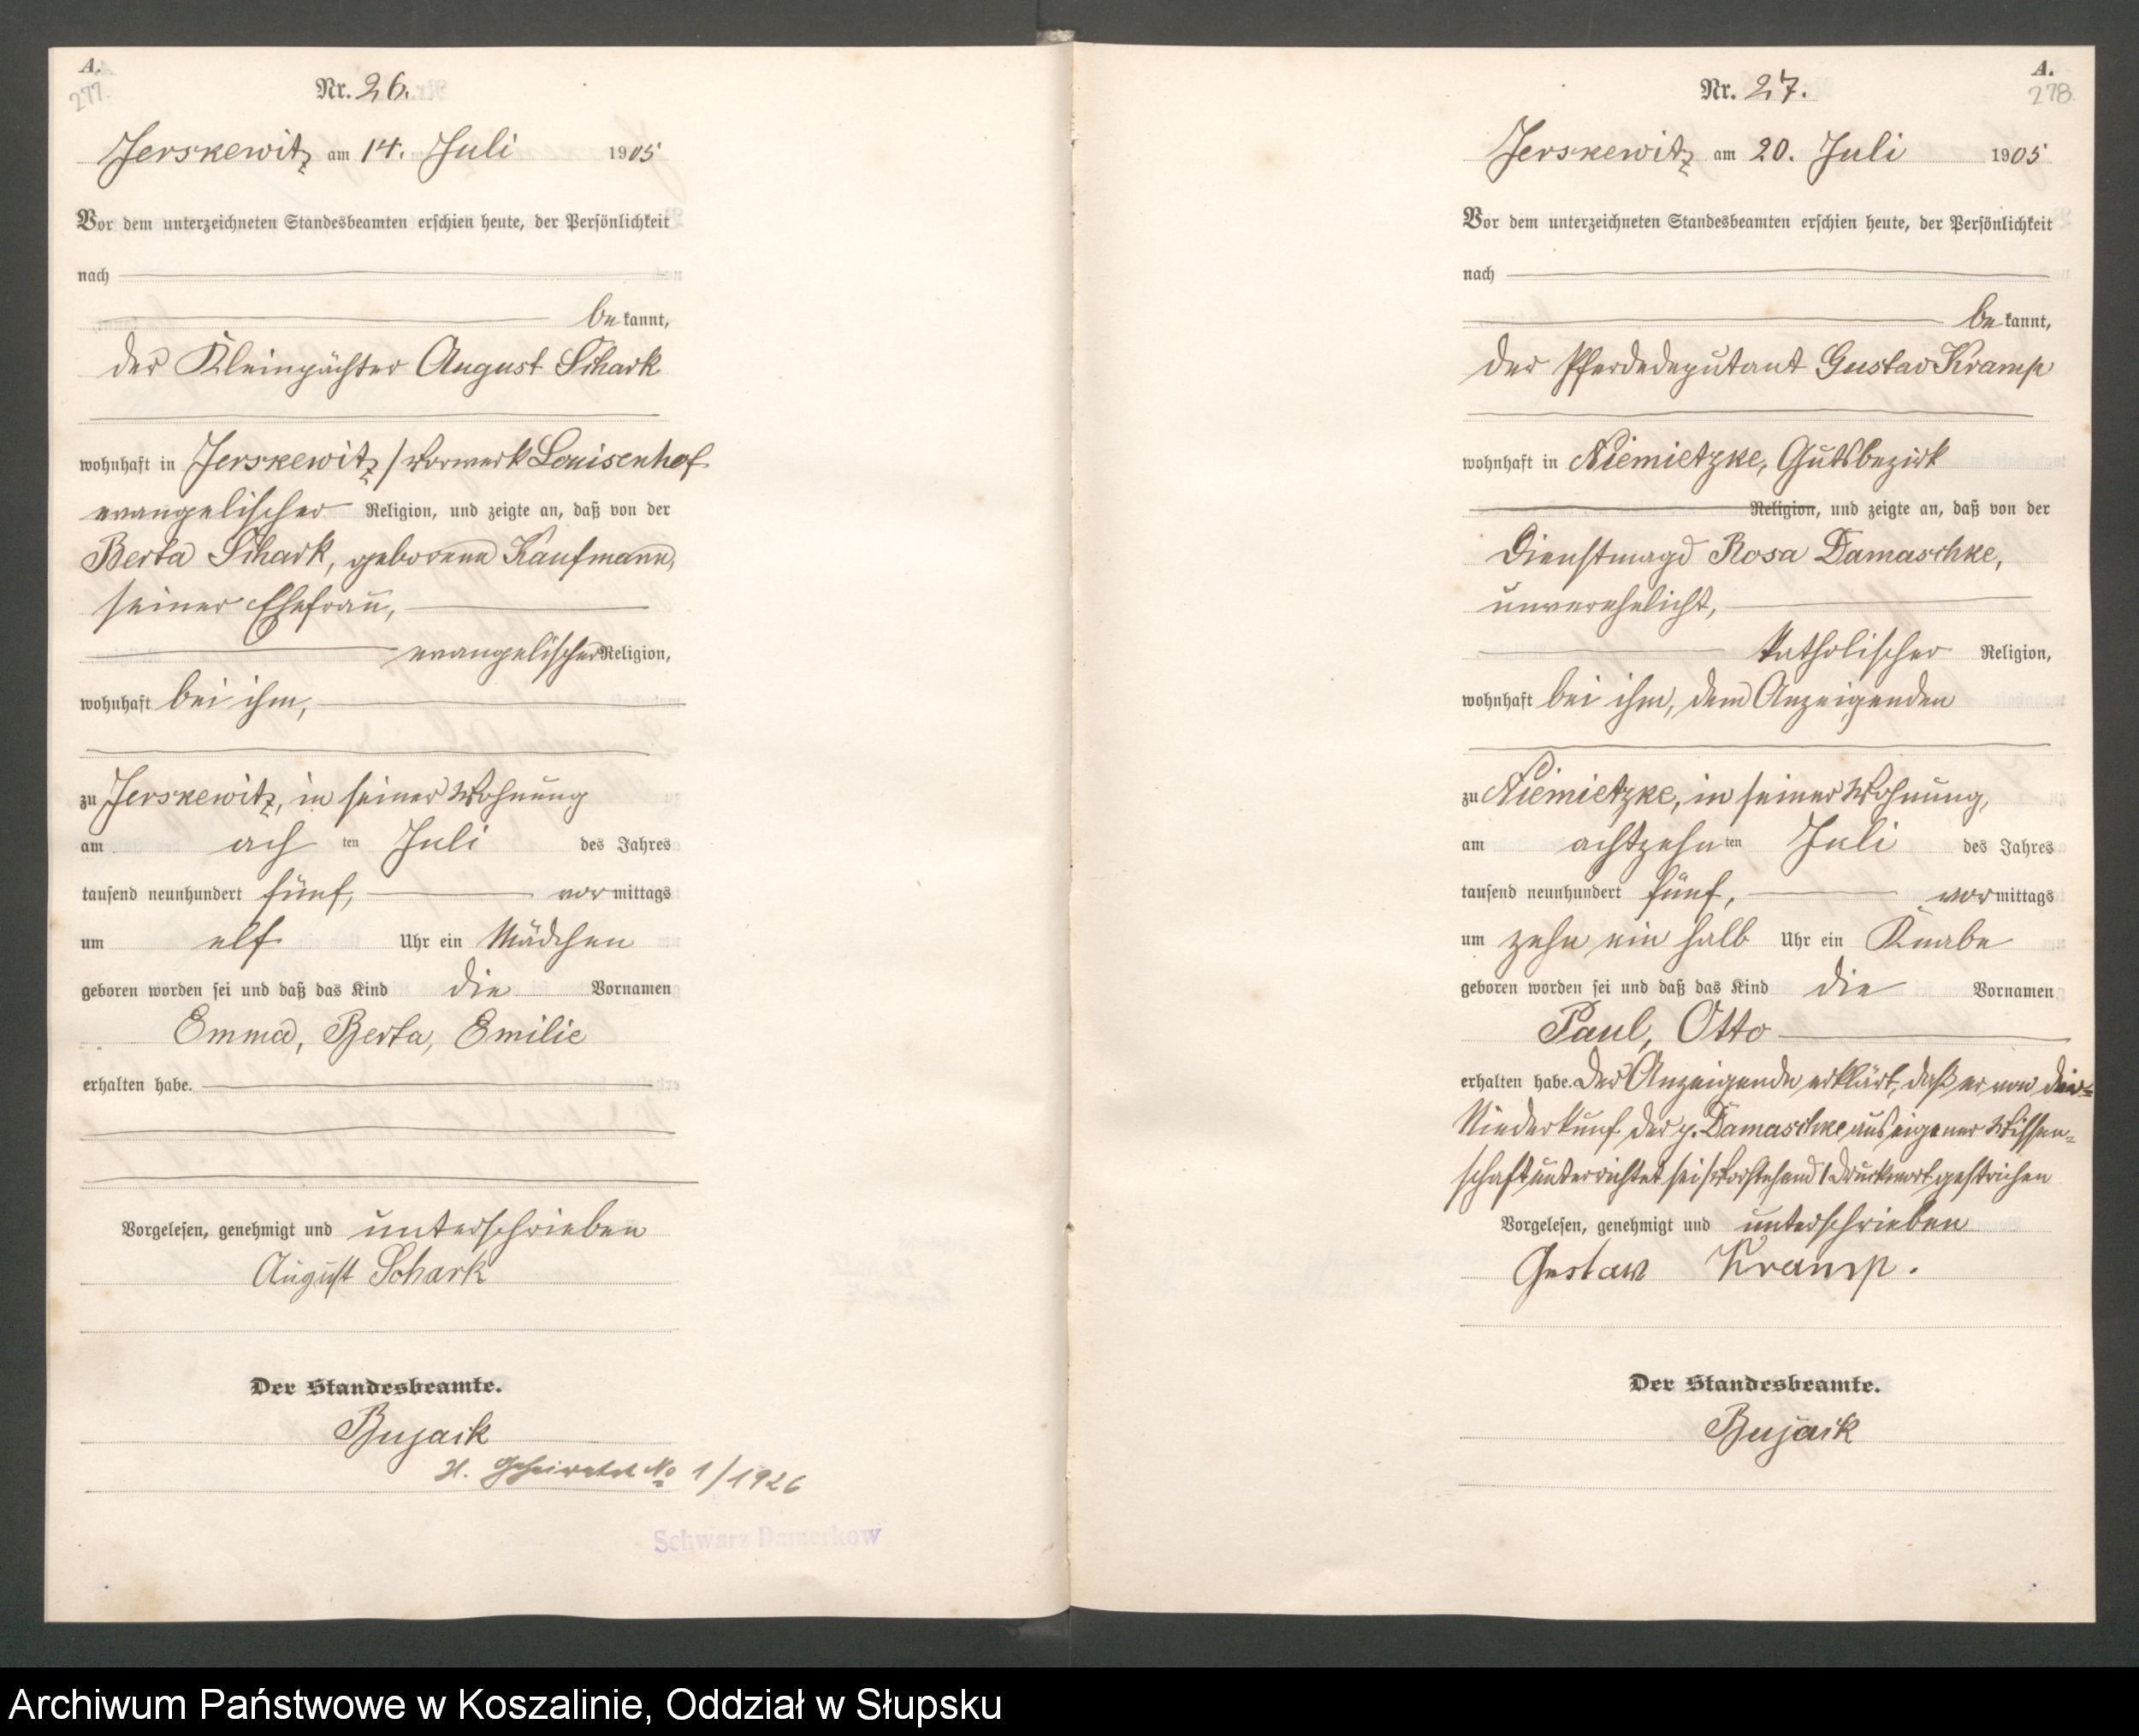 A.
277.
Nr. 26.
Jerskewitz am 14. Juli 1905
Vor dem unterzeichneten Standesbeamten erschien heute, der Persönlichkeit
nach
bekannt,
der Kleinpächter August Schark
wohnhaft in Jerskewitz / Vorwerk Louisenhof
evangelischer Religion, und zeigte an, daß von der
Berta Schark, geborene Kaufmann,
seiner Ehefrau,
evangelischer Religion,
wohnhaft bei ihm,
zu Jerskewitz, in seiner Wohnung
am achten Juli des Jahres
tausend neunhundert fünf, vormittags
um elf Uhr ein Mädchen
geboren worden sei und daß das Kind die Vornamen
Emma, Berta, Emilie
erhalten habe.
Vorgelesen, genehmigt und unterschrieben
August Schark
Der Standesbeamte.
Bujack
Geheiratet No 1/1926
Schwarz Damerkow
A.
278.
Nr. 27.
Jerskewitz am 20. Juli 1905
Vor dem unterzeichneten Standesbeamten erschien heute, der Persönlichkeit
nach
bekannt,
der Pferdedeputant Gustav Kramp
wohnhaft in Niemietzke, Gutsbezirk
Religion, und zeigte an, daß von der
Dienstmagd Rosa Damaschke,
unverehelicht,
katholischer Religion,
wohnhaft bei ihm, dem Anzeigenden
zu Niemietzke, in seiner Wohnung,
am achtzehnten Juli des Jahres
tausend neunhundert fünf, vormittags
um zehn ein halb Uhr ein Knabe
geboren worden sei und daß das Kind die Vornamen
Paul, Otto
erhalten habe. Der Anzeigende erklärt, daß er von der
Niederkunf der p. Damaschke aus eigener Wissen-
schaft unterrichtet sei / Vorstehend 1 Druckwort gestrichen
Vorgelesen, genehmigt und unterschrieben
Gustaw Kramp.
Der Standesbeamte.
Bujack
Archiwum Państwowe w Koszalinie, Oddział w Słupsku